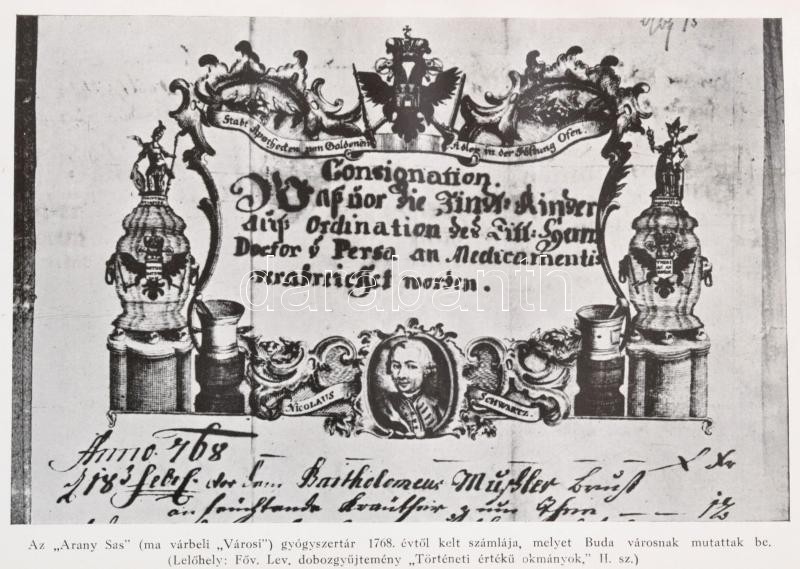 Stadt Apothecken zum Goldenen Adler in derFöstung Ofen.
Consignation.
Waß vor die Findl: Kinder
auß Ordination des Titl: Herrn
Doctor v Persa an Medicamentis
verabreichet worden.
NICOLAUS SCHWARTZ.
Anno 768
d 18 vor dem Bartholomeus Mußler Brust
darabanth
Az „Arany Sas” (ma várbeli „Városi”) gyógyszertár 1768. évtől kelt számlája, melyet Buda városnak mutattak be.
(Lelőhely: Főv. Lev. dobozgyűjtemény „Történeti értékű okmányok,” II. sz.)